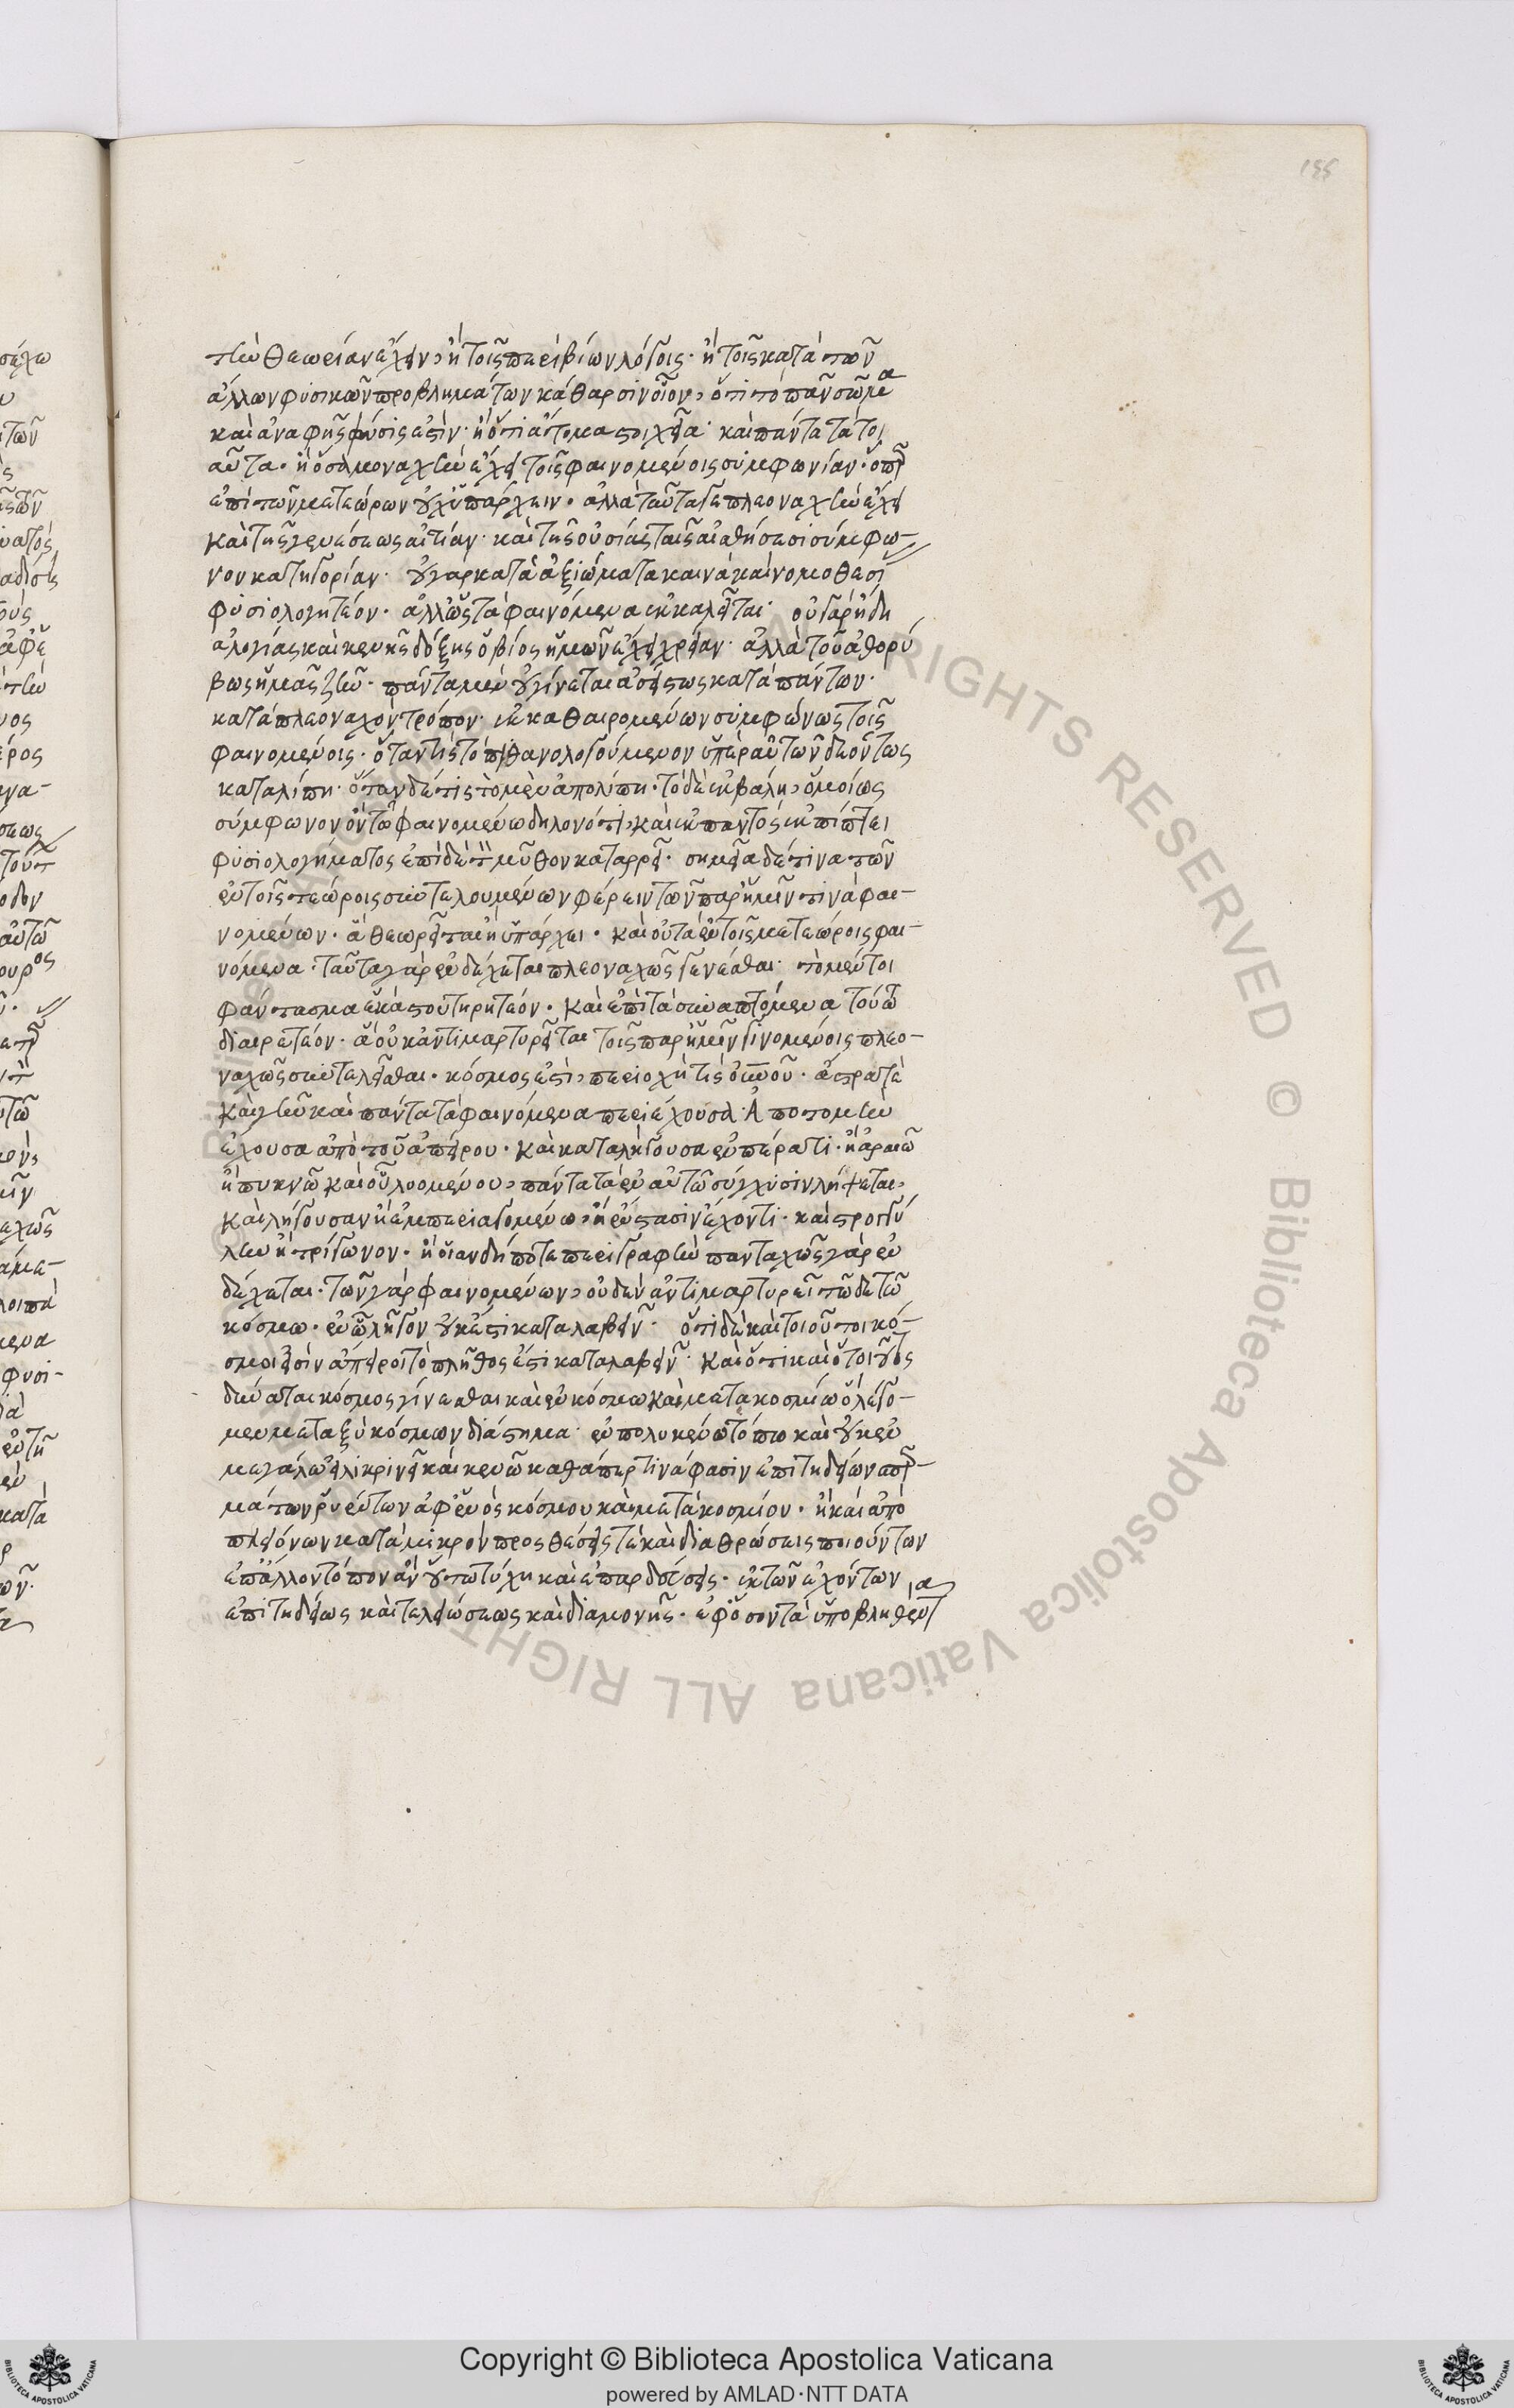 τὴν θεωρίαν ἔχειν, ἢ τοῖς περὶ βίων λόγοις· ἢ τοῖς κατὰ τῶν
ἄλλων φυσικῶν προβλημάτων κάθαρσιν οἷον, ὅτι τὸ πᾶν σῶμα
καὶ ἀναφὴς φύσις ἐστὶν· ἢ ὅτι ἄτομα στοιχεῖα· καὶ πάντα τὰ τοι
αῦτα· ἢ ὅσα μοναχὴν ἔχει τοῖς φαινομένοις συμφωνίαν· ὅπερ
ἐπὶ τῶν μετεώρων οὐχ ὑπάρχειν· ἀλλὰ ταῦτά γε πλεοναχὴν ἔχει
καὶ τῆς γενέσεως αἰτίαν· καὶ τῆς οὐσίας ταῖς αἰσθήσεσι σύμφω-
νον κατηγορίαν· οὐ γὰρ κατὰ ἀξιώματα καινὰ καὶ νομοθεσί
φυσιολογητέον· ἀλλ' ὡς τὰ φαινόμενα ἐκκαλεῖται· οὐ γὰρ ἤδη
ἀλογίας καὶ κενῆς δόξης ὁ βίος ἡμῶν ἔχει χρείαν· ἀλλὰ τοῦ ἀθορύ
βως ἡμᾶς ζῆν· πάντα μὲν οὖ γίνεται ἀσείστως κατὰ πάντων·
κατὰ πλεοναχὸν τρόπον· ἐκκαθαιρομένων συμφώνως τοῖς
φαινομένοις· ὅταν τις τὸ πιθανολογούμενον ὑπὲρ αὐτῶν δεόντως
καταλίπη· ὅταν δέ τις τὸ μὲν ἀπολίπη· τὸ δὲ ἐκβάλη, ὁμοίως
σύμφωνον ὂν τῶ φαινομένω δηλονότι, καὶ ἐκ παντὸς ἐκπίπτει
φυσιολογήματος ἐπὶ δὲ τὸν μῦθον καταρρεῖ· σημεῖα δέ τινα τῶν
ἐν τοῖς τεώροις συντελουμένων φέρειν τῶν παρ' ἡμῖν τινὰ φαι-
νομένων· ἃ θεωρεῖται ἢ ὑπάρχει· καὶ οὐ τὰ ἐν τοῖς μετεώροις φαι-
νόμενα· ταῦτα γὰρ ἐνδέχεται πλεοναχῶς γενέσθαι· τὸ μέντοι
φάντασμα ἑκάστου τηρητέον· καὶ ἐπὶ τὰ συναπτόμενα τούτω
διαιρετέον· ἃ οὐκ ἀντιμαρτυρεῖται τοῖς παρ' ἡμῖν γινομένοις πλεο-
ναχῶς συντελεῖσθαι· κόσμος ἐστὶ, περιοχή τις οὐρανοῦ· ἄστρα τὲ
καὶ γῆν καὶ πάντα τὰ φαινόμενα περιέχουσα· Ἀποτομὴν
ἔχουσα ἀπὸ τοῦ ἀπείρου· καὶ καταλήγουσα ἐν πέρατι· ἢ ἀραιῶ
ἢ πυκνῶ καὶ οὗ λυομένου, πάντα τὰ ἐν αὐτῶ σύγχυσιν λήψεται,
καὶ λήγουσαν ἢ ἐν περιαγομένω, ἢ ἐν στάσιν ἔχοντι· καὶ στρογγύ
λην ἢ τρίγωνον· ἢ οἵαν δήποτε περιγραφὴν πανταχῶς γὰρ ἐν
δέχεται· τῶν γὰρ φαινομένων, οὐδὲν ἀντιμαρτυρεῖ τῶδε τῶ
κόσμω· ἐν ὧ λῆγον οὐκ ἔστι καταλαβεῖν· ὅτι δὲ καὶ τοιοῦτοι κό-
σμοι εἰσὶν ἄπειροι τὸ πλῆθος ἔστι καταλαβεῖν· καὶ ὅτι καὶ ὁ τοιοῦτος
δύναται κόσμος γίνεσθαι καὶ ἐν κόσμω καὶ μετακοσμίω ὃ λέγο-
μεν μεταξὺ κόσμων διάστημα· ἐν πολυκένω τόπω καὶ οὐκ ἐν
μεγάλω εἰλικρινεῖ καὶ κενῶ καθάπερ τινὲς φασὶν ἐπιτηδείων σπερ-
μάτων ῥυέντων ἀφ' ἑνὸς κόσμου καὶ μετακοσμίου· ἢ καὶ ἀπὸ
πλειόνων κατὰ μικρὸν προσθέσεις τὲ καὶ διαθρώσεις ποιούντων
ἐπ' ἄλλον τόπον ἂν οὕτω τύχη καὶ ἐπαρδεύσεις· ἐκ τῶν ἐχόντων
ἐπιτηδείως καὶ τελειώσεως καὶ διαμονῆς· ἐφ' ὅσον τὰ ὑποβληθέντα
Copyright © Biblioteca Apostolica Vaticana
powered by AMLAD·NTT DATA